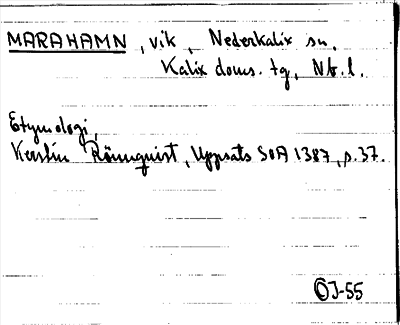 MARAHAMN, vik, Nederkalix sn,
Kalix doms. tg, Nb. l.
Etymologi,
Kerstin Rönnquist, Uppsats SOA 1387, s. 37.
OJ-55